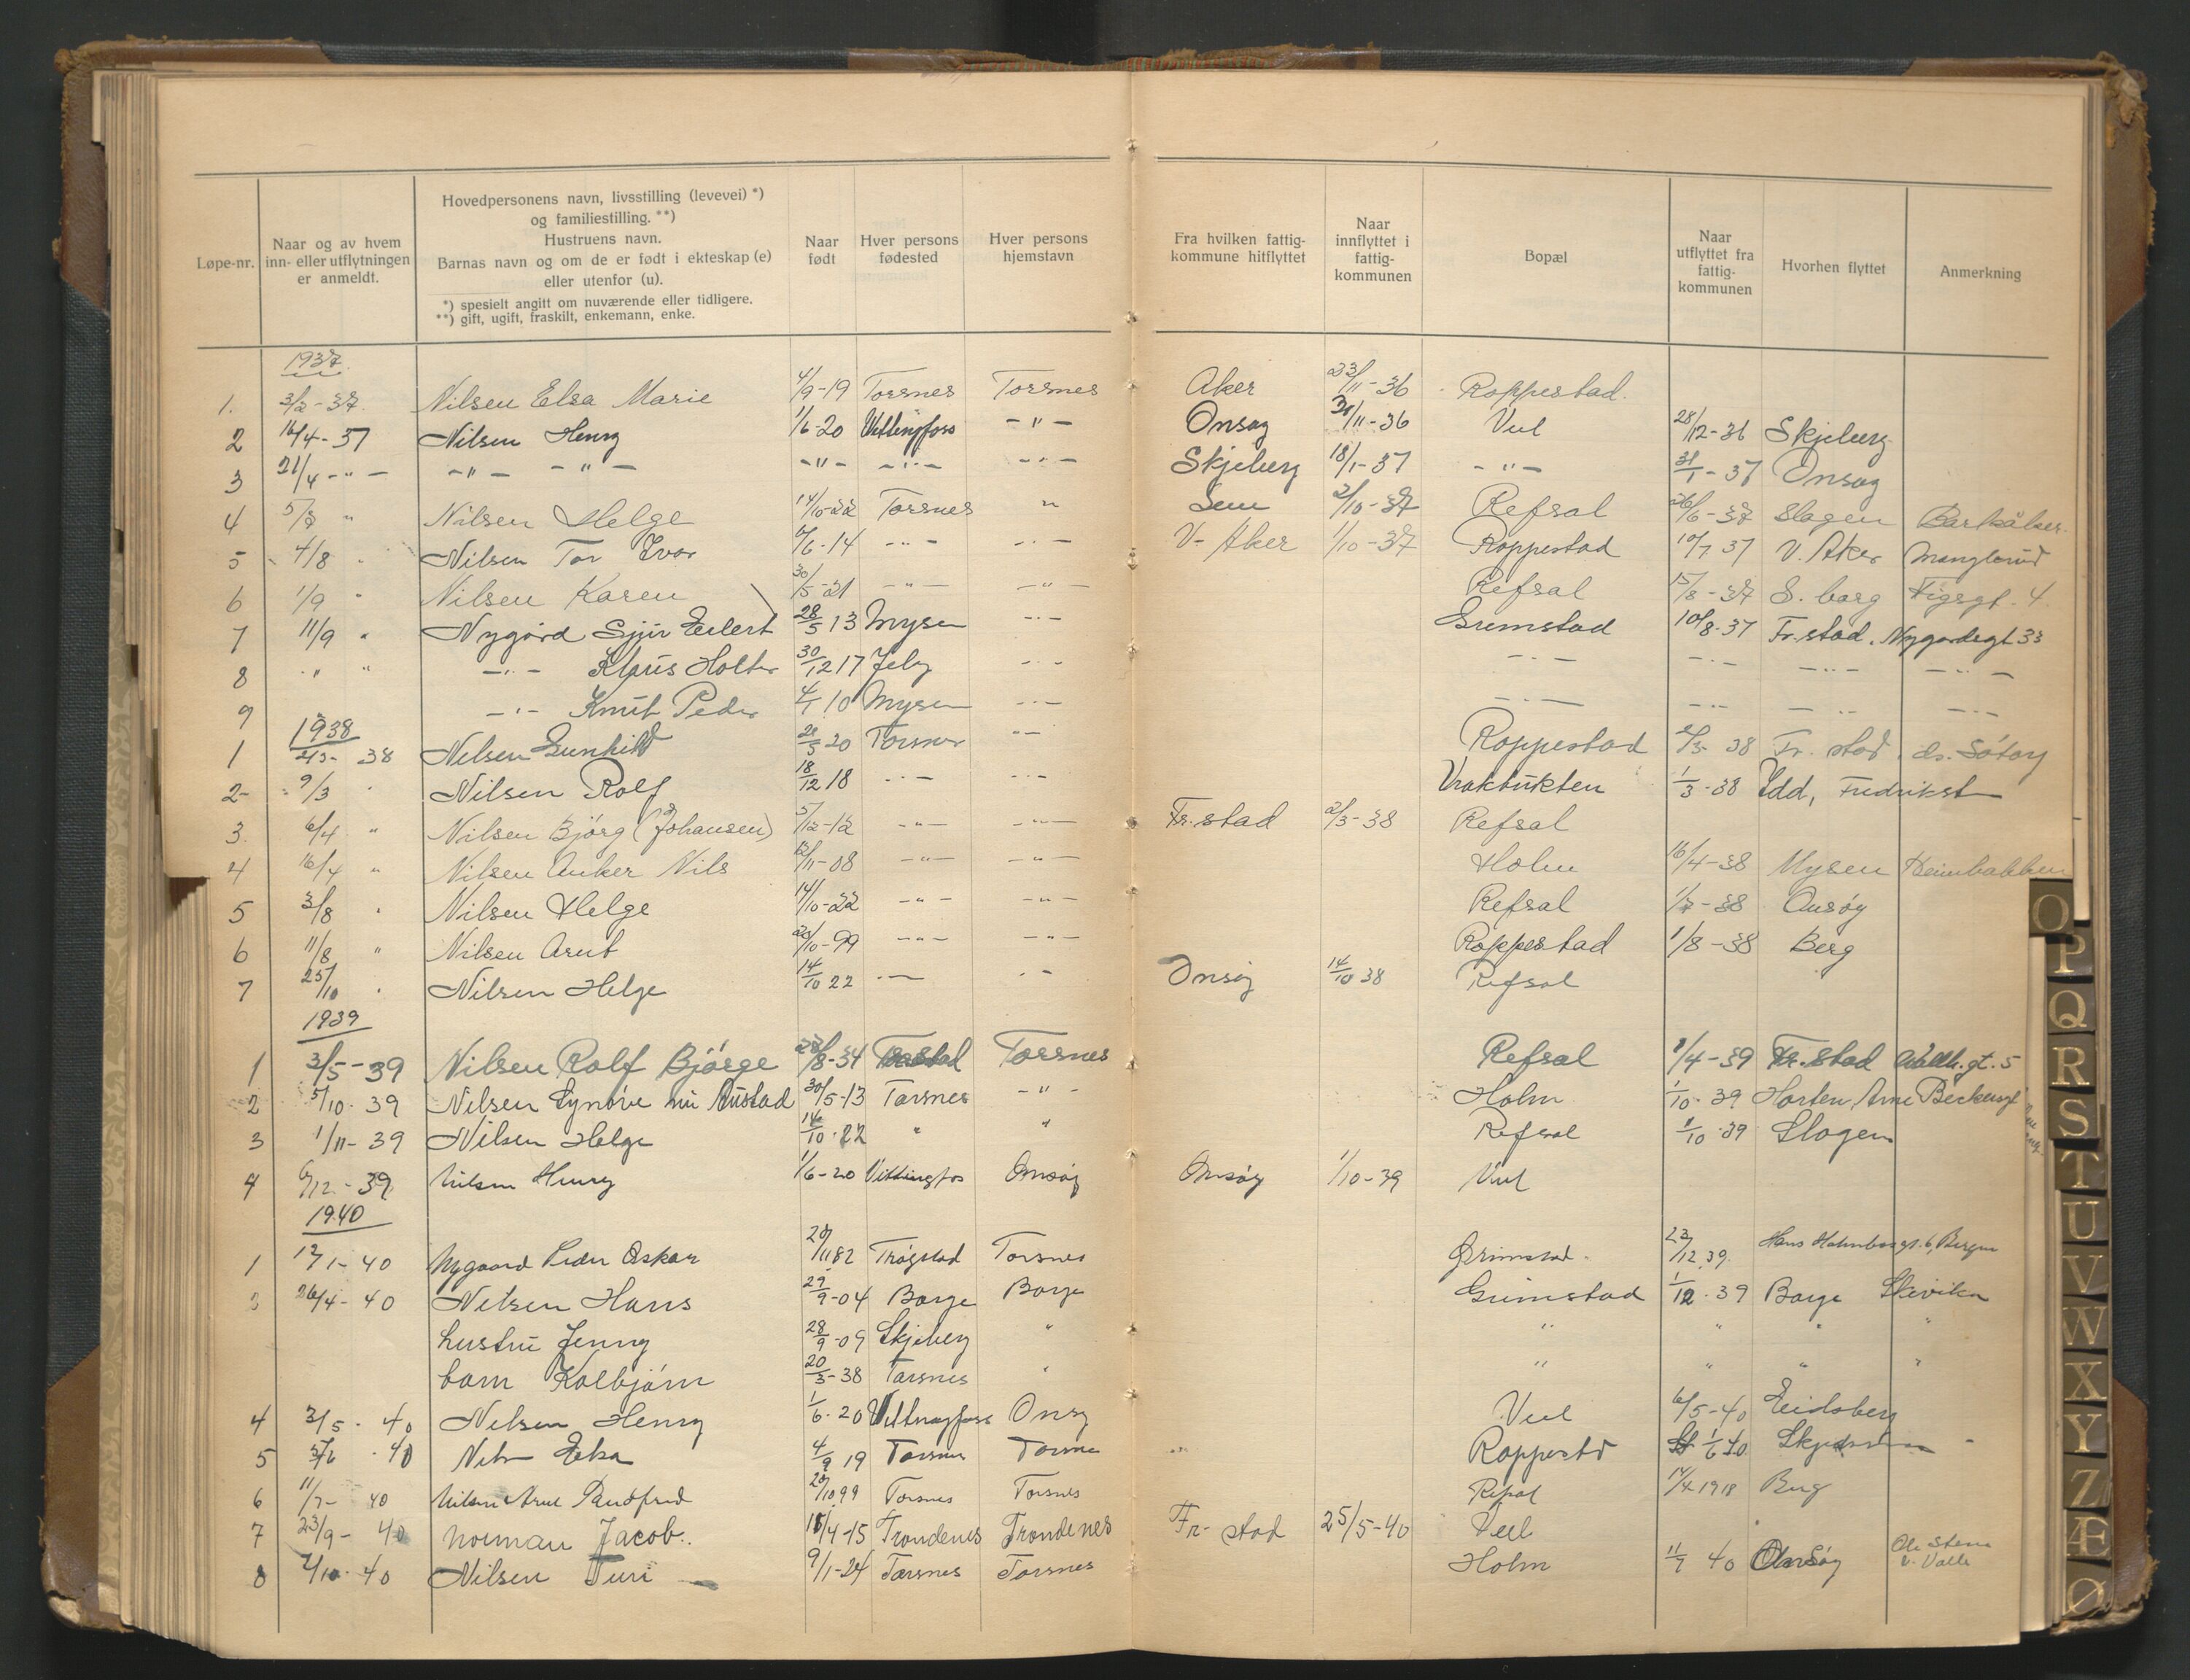 Løpe-nr.
Naar og av hvem inn- eller utflytningen er anmeldt.
Hovedpersonens navn, livsstilling (levevei) *) og familiestilling. **)
Hustruens navn.
Barnas navn og om de er født i ekteskap (e) eller utenfor (u).
*) spesielt angitt om nuværende eller tidligere.
**) gift, ugift, fraskilt, enkemann, enke.
Naar født
Hver persons fødested
Hver persons hjemstavn
Fra hvilken fattigkommune hitflyttet
Naar innflyttet i fattigkommunen
Bopæl
Naar utflyttet fra fattigkommunen
Hvorhen flyttet
Anmerkning
1937
1. 3/2-37 Nilsen Elsa Marie 4/9-19 Torsnes Torsnes Aker 23/11-36 Roppestad.
2 16/4-37 Nilsen Henry 1/6-20 Vittingfoss -"- Onsøy /11-36 Vul 28/12-36 Skjeberg
3 21/4 -"- -"- -"- -"- -"- -"- Skjeberg 18/1-37 -"- 31/1-37 Onsøy
4 5/ " Nilsen Helge 14/10-22 Torsnes " Sem 2/10-37 Refsal 26/6-37 Slagen
5 4/8 " Nilsen Tor Ivar /6-14 -"- -"- V. Aker 1/10-37 Roppestad 10/7 37 V. Aker Manglerud
6 1/9 " Nilsen Karen 30/5-21 -"- -"- Refsal 15/8-37 S.borg 4
7 11/9 " Nygård Sjur Eilert 28/5 13 Mysen -"- Grimstad 10/8-37 Fr.stad. Nygardsgt 33
8 " " -"- Klaus Holter 30/12 17 Jeløy -"- -"- -"- -"- -"-
9 -"- Knut Peder 4/1 10 Mysen -"- -"- -"- -"- -"-
1938
1 2/3- 38 Nilsen Gunhild 28/5 20 Torsnes "- Roppestad 2/3- 38 Fr. stad.
2- 9/3 " Nilsen Rolf 18/12 18 -"- -"- 1/3-38 Idd, Fredrikst
3. 6/4 " Nilsen Bjørg (Johansen) 5/12-12 -"- -"- Fr.stad 2/3-38 Refsal
4 16/4 " Nilsen Anker Nils 12/11-08 -"- -"- Holm 16/4-38 Mysen Heimbakken
5 3/8 " Nilsen Helge 14/10-22 -"- -"- Refsal 1/7-38 Onsøy
6 11/8 " Nilsen Arnt 20/10-99 -"- -"- Roppestad 1/8-38 Berg
7 25/10 " Nilsen Helge 14/10 22 -"- "- Onsøy 14/10 38 Refsal
1939
1 3/5-39 Nilsen Rolf Bjørge 28/8-34 Torsnes Refsal 1/4-39 Fr.stad gt. 5
2 5/10-39 Nilsen Synøve nu Austad 30/5-13 Torsnes -"- Holm 1/10-39 Horten, Arne Beckersgt
3 1/11-39 Nilsen Helge 14/10-22 " " Refsal 1/10-39 Slagen
4 6/12-39 Nilsen Henry 1/6-20 Vittingfos Onsøy Onsøy 1/10-39 Vul
1940
1 12/1-40 Nygaard Peder Oskar 20/11 82 Trøgstad Torsnes Grimstad. 23/12 39. Hans Holmboesgt. 6, Bergen
3 26/4-40 Nilsen Hans 29/9-04 Borge Borge Grimstad 1/12-39 Borge Slevikn
hustru Jenny 28/9-09 Skjeberg " " " " "
barn Kolbjørn 20/3-38 Torsnes " " " " "
4 3/5-40 Nilsen Henry 1/6-20 Vittingfoss Onsøy Vul 6/5-40 Eidsberg
5 5/6-40 Nils Elsa 4/9 19 Torsnes Torsnes Roppestd 1/6 40
6 11/7- 40 Nilsen Arne 20/10 99 Torsnes Torsnes Refsal 17/4 1918 Berg
7 23/9- 40 Norman Jacob. 15/4-15 Trondenes Trondenes Fr- stad 25/5-40 Vul
8 2/10-40 Nilsen Turi 9/1-24 Torsnes Torsnes Holm 11/7 40 Onsøy Ole Stene v. Valle
O
P
Q
R
S
T
U
V
W
X
Y
Z
Æ
Ø